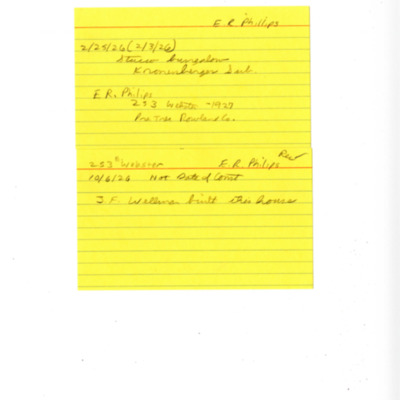 E R Phillips
2/25/26 (2/3/26)
Stucco bungalow
Kronenberger Sub.
E R. Philips
253 Webster - 1927
Rowland Co.
Rev
253 Webster E. R. Philips
10/6/26 Not Date of Const
J. F. Wellman built this house